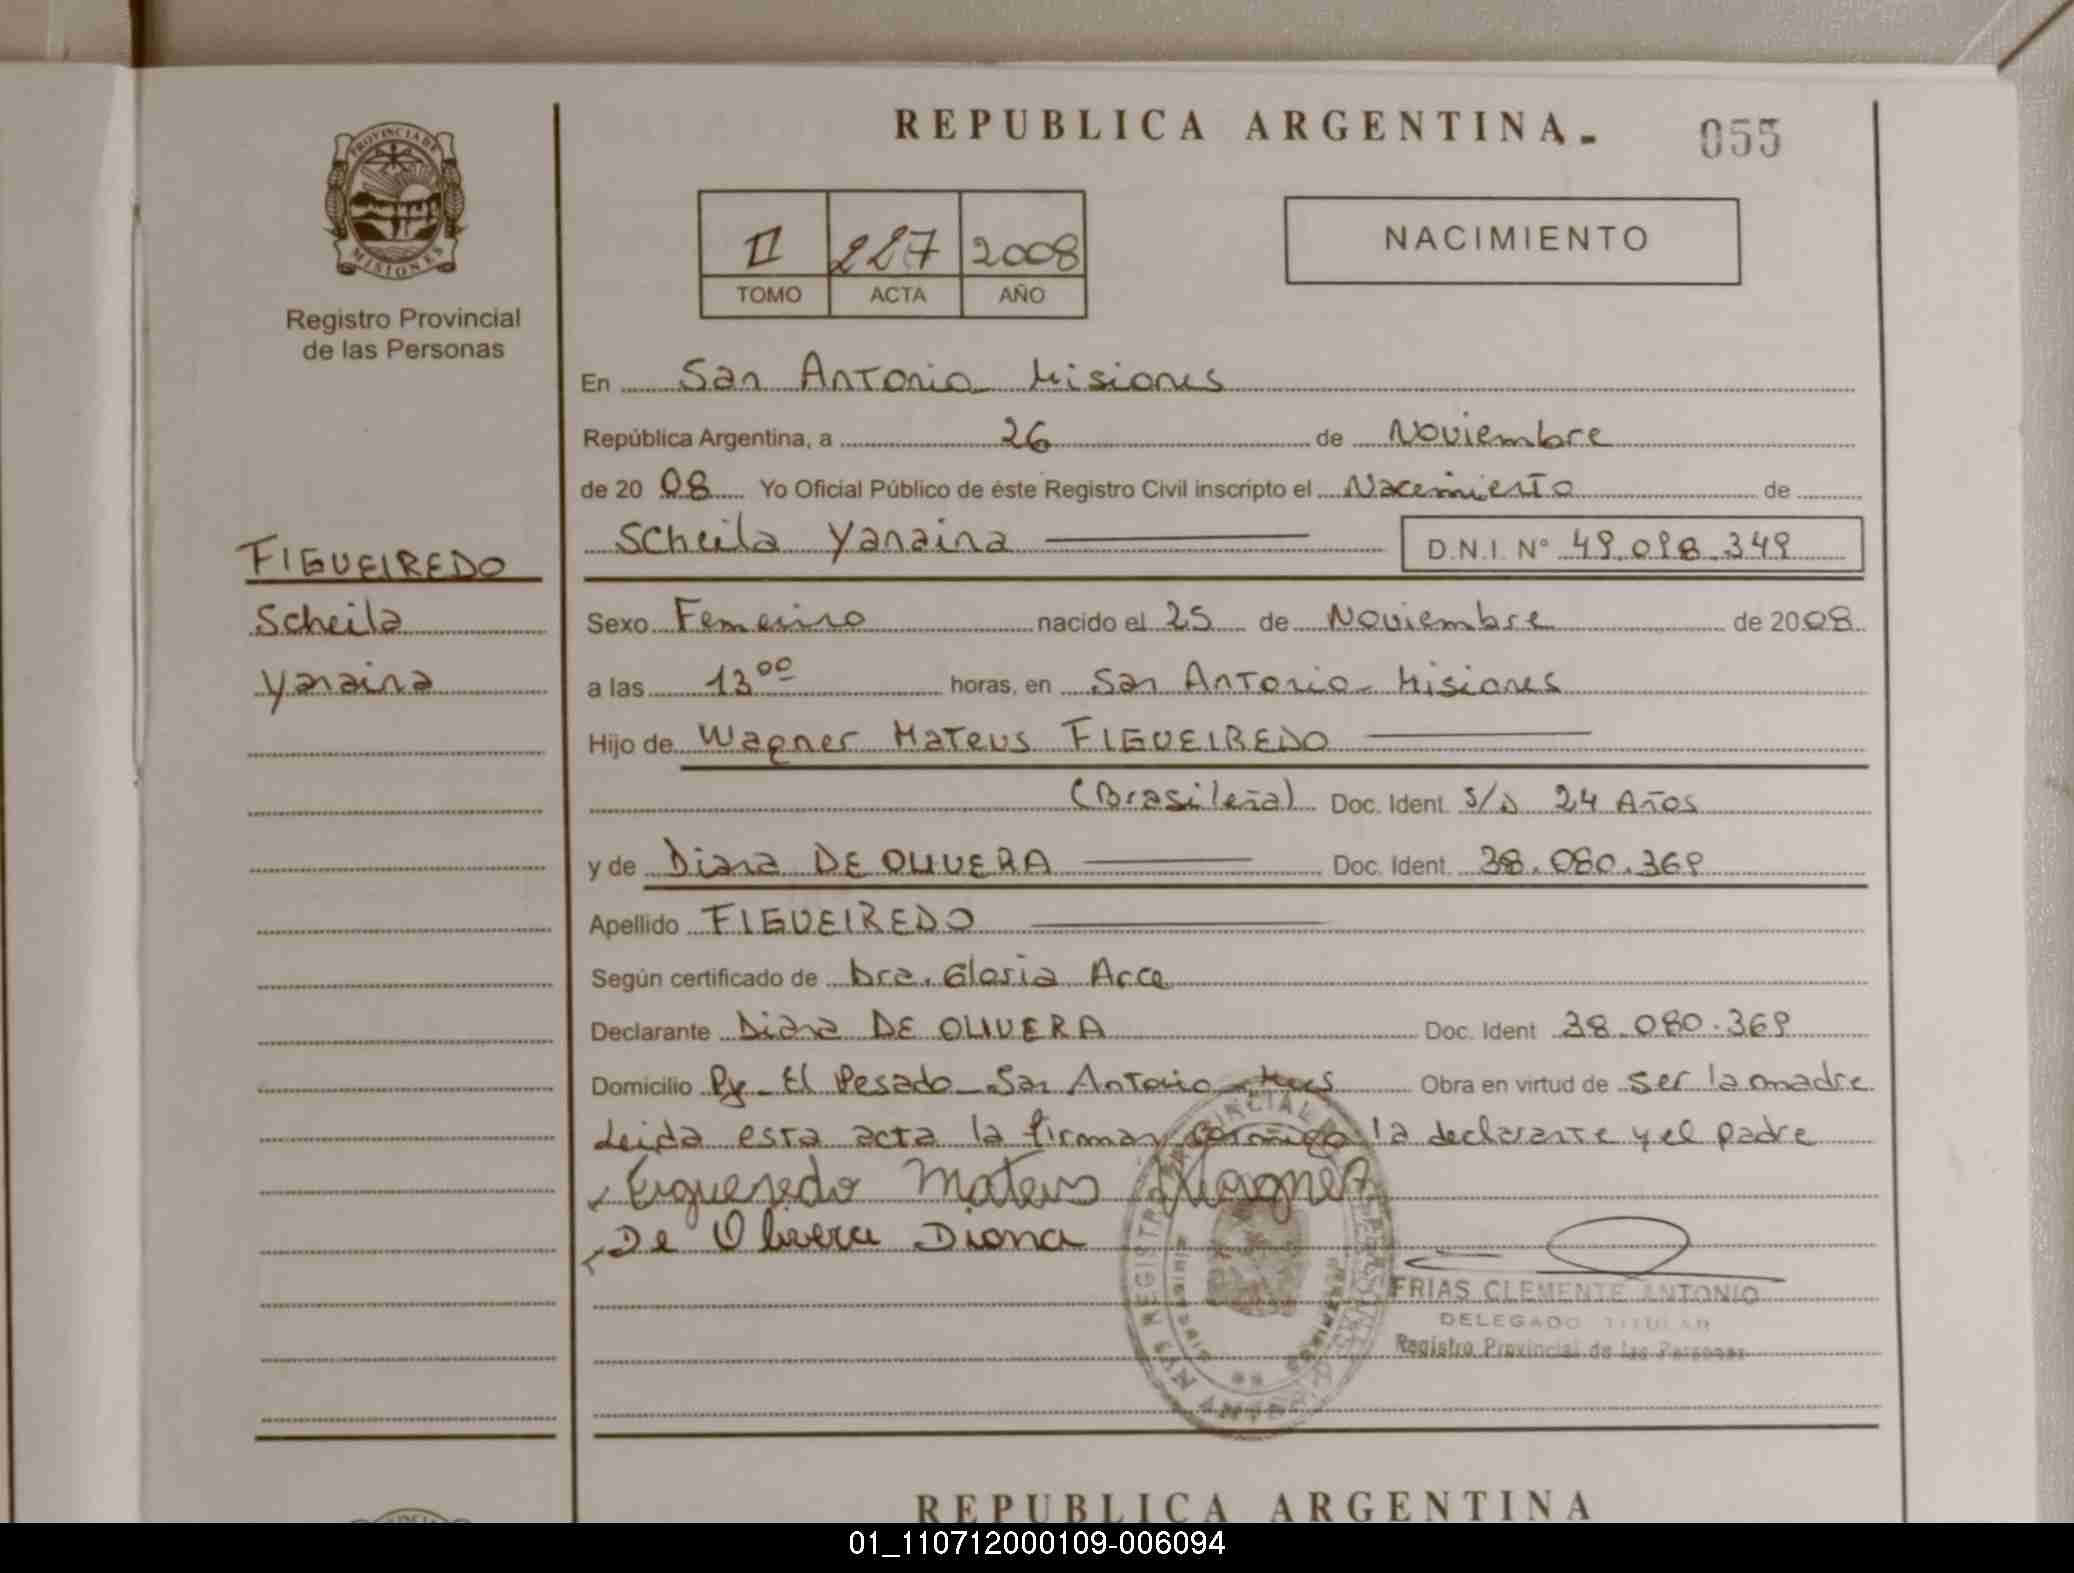 REPUBLICA ARGENTINA.-
055
PROVINCIA DE
MISIONES
Registro Provincial
de las Personas
II 227 2008
TOMO ACTA AÑO
NACIMIENTO
En San Antonio Misiones
República Argentina, a 26 de Noviembre
de 20 08 Yo Oficial Público de éste Registro Civil inscripto el Nacemiento de
Scheila Yanaina D.N.I. Nº 49.098.349
FIGUEIREDO
Scheila
Yanaina
Sexo Femenino nacido el 25 de Noviembre de 2008
a las 13 00 horas, en San Antonio - Misiones
Hijo de Wagner Mateus FIGUEIREDO
(Brasileña) Doc. Ident. s/d 24 Años
y de Diana DE OLIVERA Doc. Ident. 38.080.369
Apellido FIGUEIREDO
Según certificado de Dra. Gloria Acce
Declarante Diana DE OLIVERA Doc. Ident 38.080.369
Domicilio Pje - El Pesado - San Antonio - Mnes Obra en virtud de ser la madre
Leida esta acta la firman conmigo la declarante y el padre
Figueredo Mateus Wagner
De Olivera Diana
FRIAS CLEMENTE ANTONIO
DELEGADO TITULAR
Registro Provincial de las Personas
REPUBLICA ARGENTINA
01_110712000109-006094